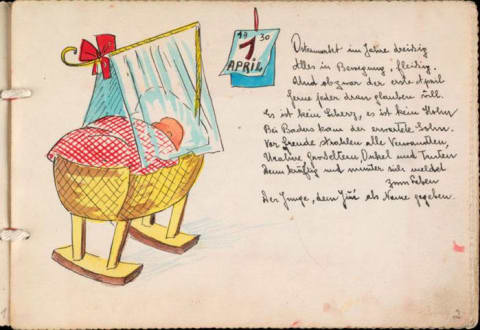 19 30
1
APRIL
Ostermarkt im Jahre dreißig
Alles in Bewegung, fleißig.
Und obzwar der erste April
jeder dran glauben will.
Es ist kein Scherz, es ist kein Hohn
Bei Baders kam der erwartete Sohn.
Vor Freude strahlen alle Verwandten,
Großeltern, Onkel und Tanten
Denn kräftig und munter sich meldet
zum Leben
Der Junge, dem als Name gegeben.
2